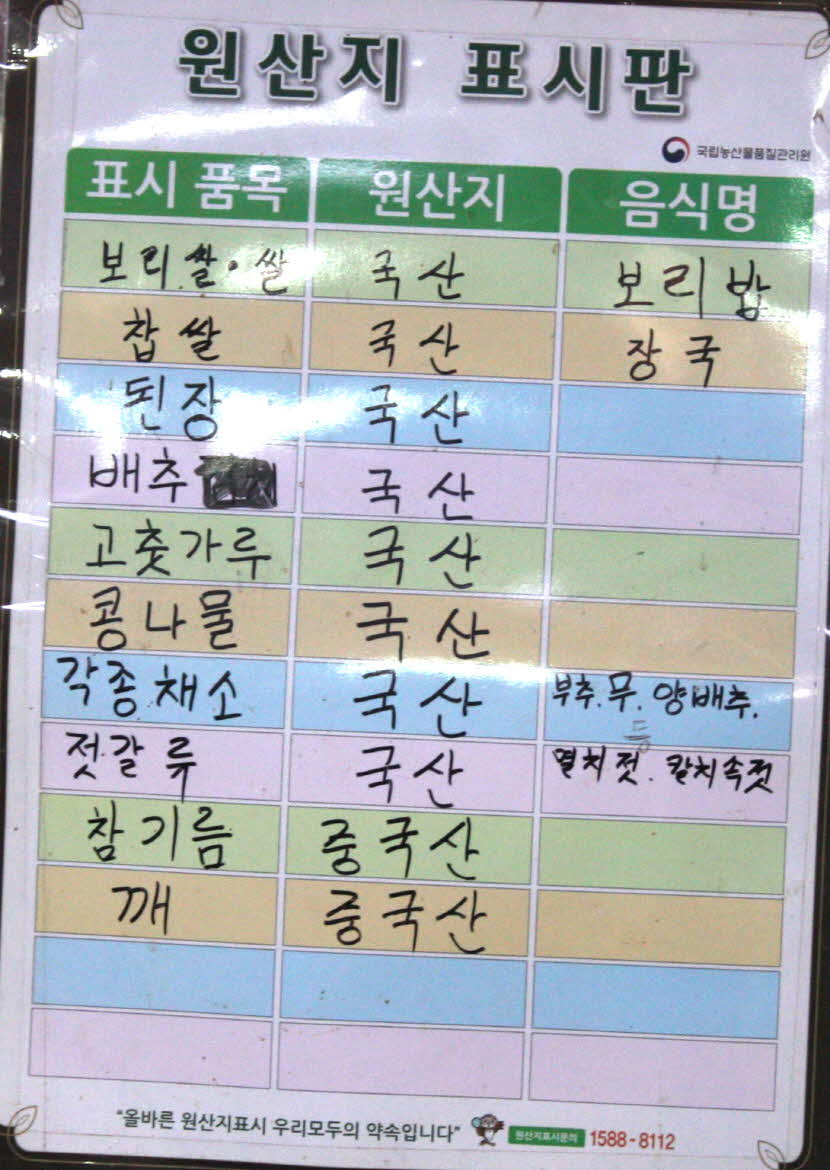 원산지 표시판
국립농산물품질관리원
표시 품목 원산지 음식명
보리쌀·쌀 국산 보리밥
찹쌀 국산 장국
된장 국산
배추 국산
고춧가루 국산
콩나물 국산
각종채소 국산 부추.무.양배추.
등
젓갈류 국산 멸치젓.칼치속젓
참기름 중국산
깨 중국산
"올바른 원산지표시 우리모두의 약속입니다" 원산지표시문의 1588-8112